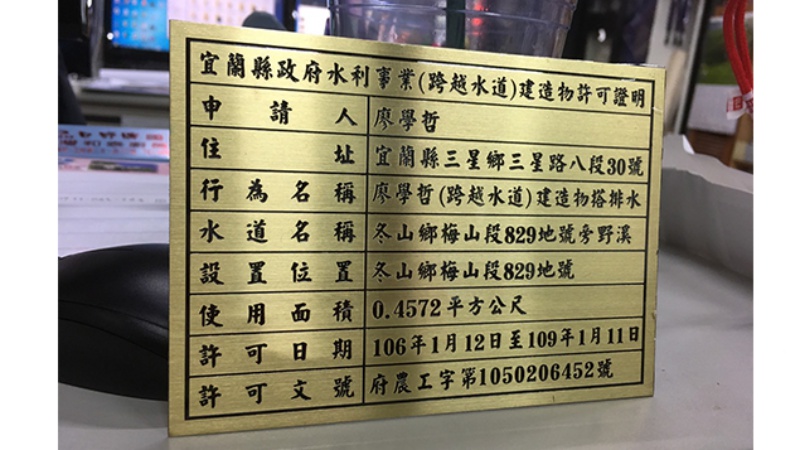 宜蘭縣政府水利事業(跨越水道)建造物許可證明
申請人 廖學哲
住址 宜蘭縣三星鄉三星路八段30號
行為名稱 廖學哲(跨越水道)建造物搭排水
水道名稱 冬山鄉梅山段829地號旁野溪
設置位置 冬山鄉梅山段829地號
使用面積 0.4572平方公尺
許可日期 106年1月12日至109年1月11日
許可文號 府農工字第1050206452號